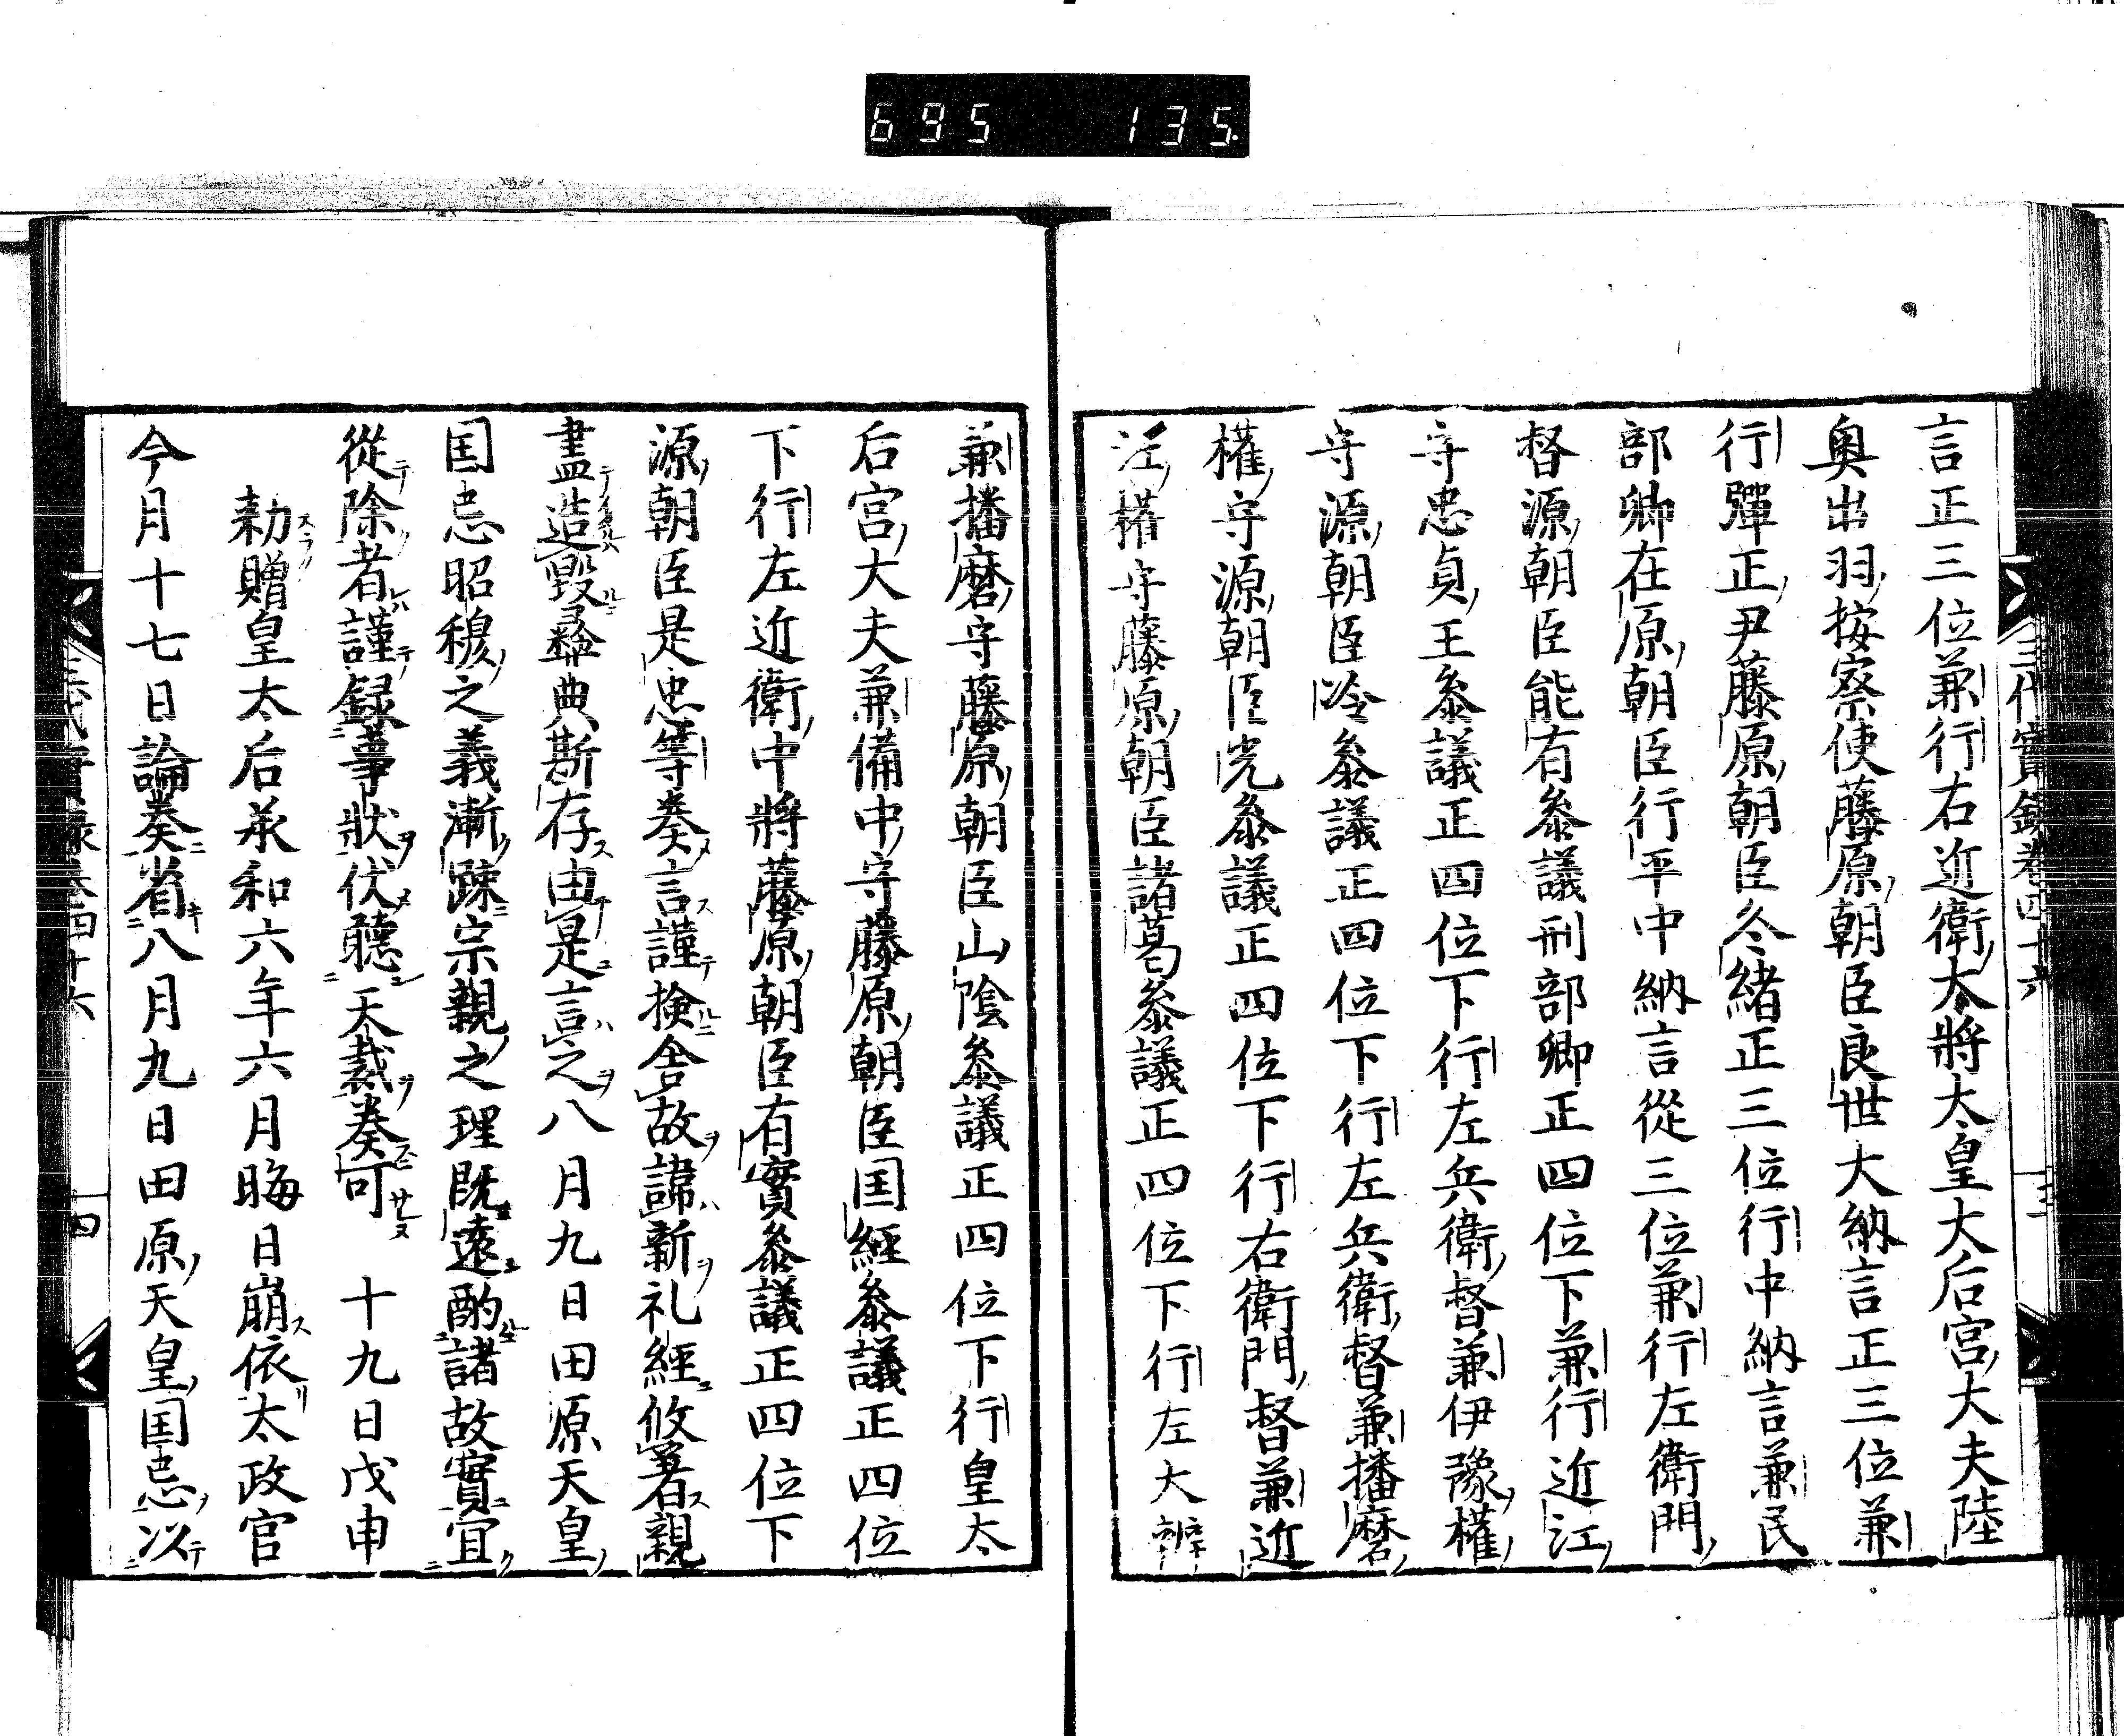 695 135.
三代實錄卷四十六
言正三位兼行右近衛大將太皇大后宮大夫陸
奧出羽按察使藤原朝臣良世大納言正三位兼
行彈正尹藤原朝臣冬緒正三位行中納言兼民
部卿在原朝臣行平中納言從三位兼行左衛門
督源朝臣能有叅議刑部卿正四位下兼行近江
守忠貞王叅議正四位下行左兵衛督兼伊豫權
守源朝臣冷叅議正四位下行左兵衛督兼播磨
權守源朝臣光叅議正四位下行右衛門督兼近
江權守藤原朝臣諸葛叅議正四位下行左大辨
兼播磨守藤原朝臣山陰叅議正四位下行皇太
后宮大夫兼備中守藤原朝臣国經叅議正四位
下行左近衛中將藤原朝臣有實叅議正四位下
源朝臣是忠等奏言謹撿舍故諱新礼經攸著親
盡造毀彛典斯存由是言之八月九日田原天皇
国忌昭穆之義漸踈宗親之理既遠酌諸故實宜
從除者謹録事狀伏聽天裁奏可 十九日戊申
勅贈皇太后承和六年六月晦日崩依太政官
今月十七日論奏省八月九日田原天皇国忌以
四